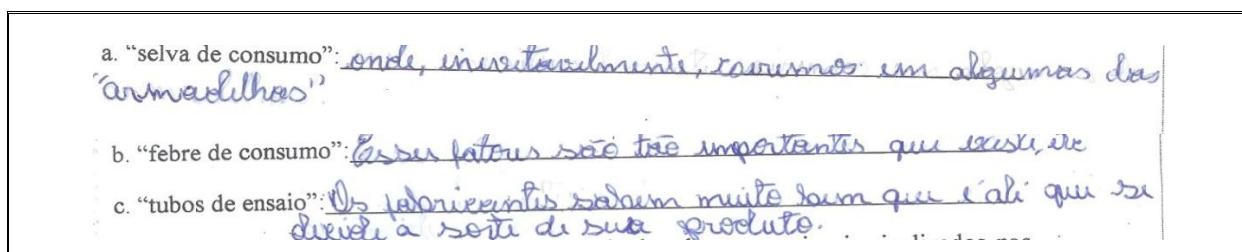 a. “selva de consumo”: onde, inevitavelmente, cairemos em algumas das
"armadilhas"
b. “febre de consumo”: Esses fatores são tão importantes que existe,
c. “tubos de ensaio”: Os fabricantes sabem muito bem que é ali que se
decide a sorte de sua produto.